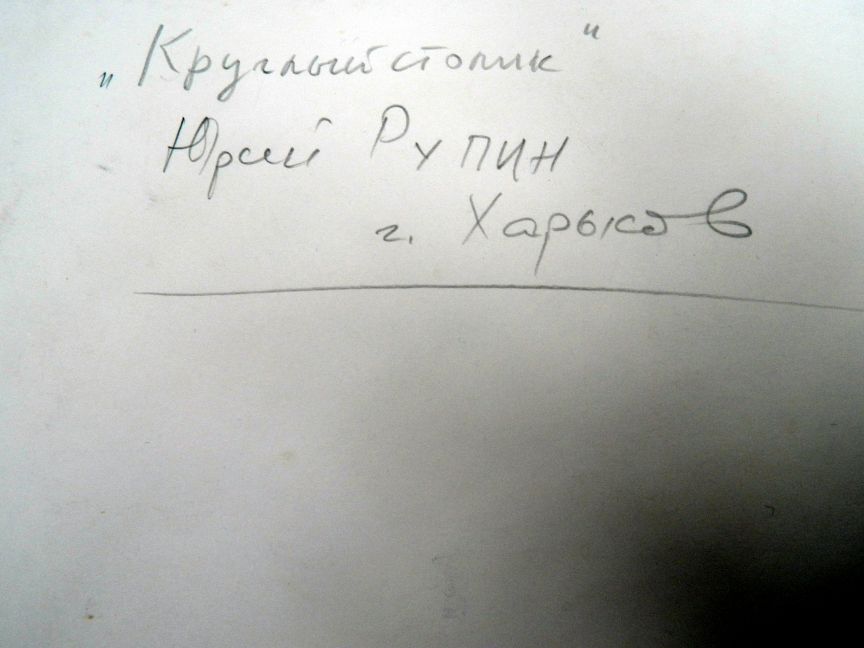 „Круглый столик"
Юрий Рупин
г. Харьков